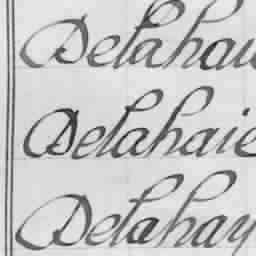 Delahau
Delahaie
Delahay